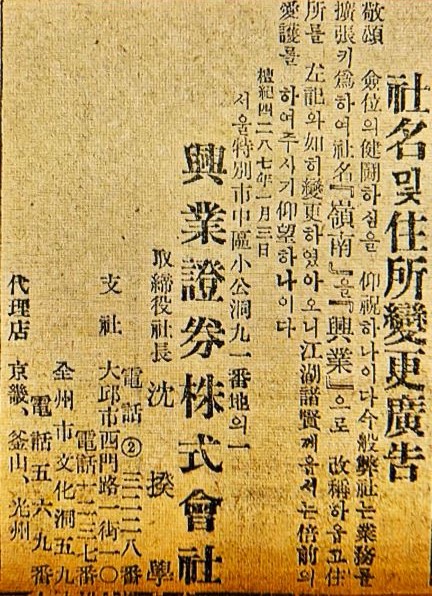 社名및住所變更廣告
敬頌 僉位의健鬪하심을 仰祝하나이다今般弊社는業務를
擴張키爲하여社名『嶺南』을『興業』으로 改稱하옵고住
所를 左記와如히變更하였아오니江湖諸賢께옵서는倍前의
愛護를 하여주시기仰望하나이다
檀紀四二八七年一月三日
서울特別市中區小公洞九一番地의一
興業證券株式會社
取締役社長 沈 揆 學
電話②三二二八番
支社 大邱市西門路一街一〇
電話一二三七番
全州市文化洞五九
電話五六九番
代理店 京畿、釜山、光州